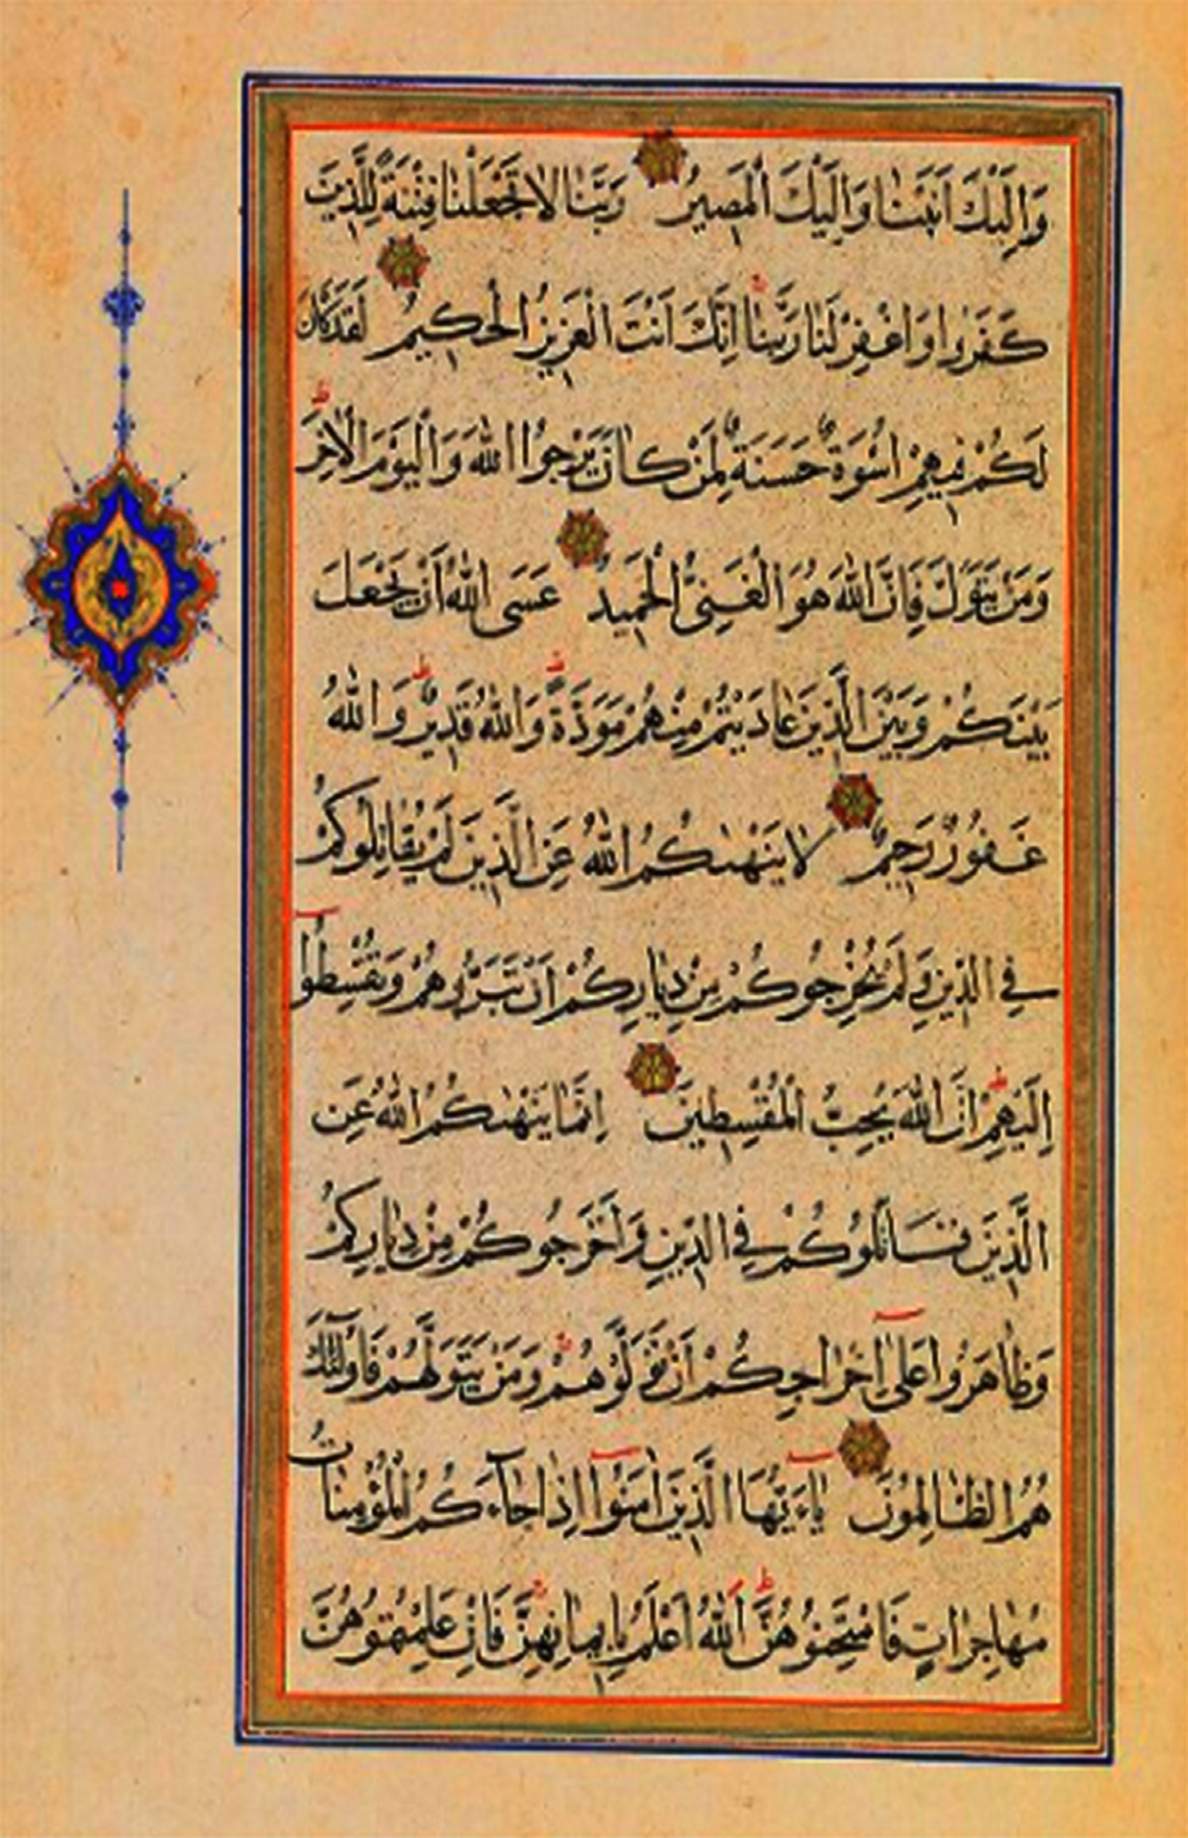 وَاِلَيْكَ اَنَبْنَا وَاِلَيْكَ الْمَصيرُ رَبَّنَا لَا تَجْعَلْنَا فِتْنَةً لِلَّذينَ
كَفَرُوا وَاغْفِرْ لَنَا رَبَّنَا اِنَّكَ اَنْتَ الْعَزيزُ الْحَكيمُ لَقَدْ كَانَ
لَكُمْ فيهِمْ اُسْوَةٌ حَسَنَةٌ لِمَنْ كَانَ يَرْجُوا اللّٰهَ وَالْيَوْمَ الْاٰخِرَ
وَمَنْ يَتَوَلَّ فَاِنَّ اللّٰهَ هُوَ الْغَنِىُّ الْحَميدُ عَسَى اللّٰهُ اَنْ يَجْعَلَ
بَيْنَكُمْ وَبَيْنَ الَّذينَ عَادَيْتُمْ مِنْهُمْ مَوَدَّةً وَاللّٰهُ قَديرٌ وَاللّٰهُ
غَفُورٌ رَحيمٌ لَا يَنْهٰىكُمُ اللّٰهُ عَنِ الَّذينَ لَمْ يُقَاتِلُوكُمْ
فِى الدّينِ وَلَمْ يُخْرِجُوكُمْ مِنْ دِيَارِكُمْ اَنْ تَبَرُّوهُمْ وَتُقْسِطُوا
اِلَيْهِمْ اِنَّ اللّٰهَ يُحِبُّ الْمُقْسِطينَ اِنَّمَا يَنْهٰىكُمُ اللّٰهُ عَنِ
الَّذينَ قَاتَلُوكُمْ فِى الدّينِ وَاَخْرَجُوكُمْ مِنْ دِيَارِكُمْ
وَظَاهَرُوا عَلٰى اِخْرَاجِكُمْ اَنْ تَوَلَّوْهُمْ وَمَنْ يَتَوَلَّهُمْ فَاُولٰٓئِكَ
هُمُ الظَّالِمُونَ يَاءَيُّهَا الَّذينَ اٰمَنُوا اِذَا جَاۤءَكُمُ الْمُؤْمِنَاتُ
مُهَاجِرَاتٍ فَامْتَحِنُوهُنَّ اَللّٰهُ اَعْلَمُ بِايمَانِهِنَّ فَاِنْ عَلِمْتُمُوهُنَّ